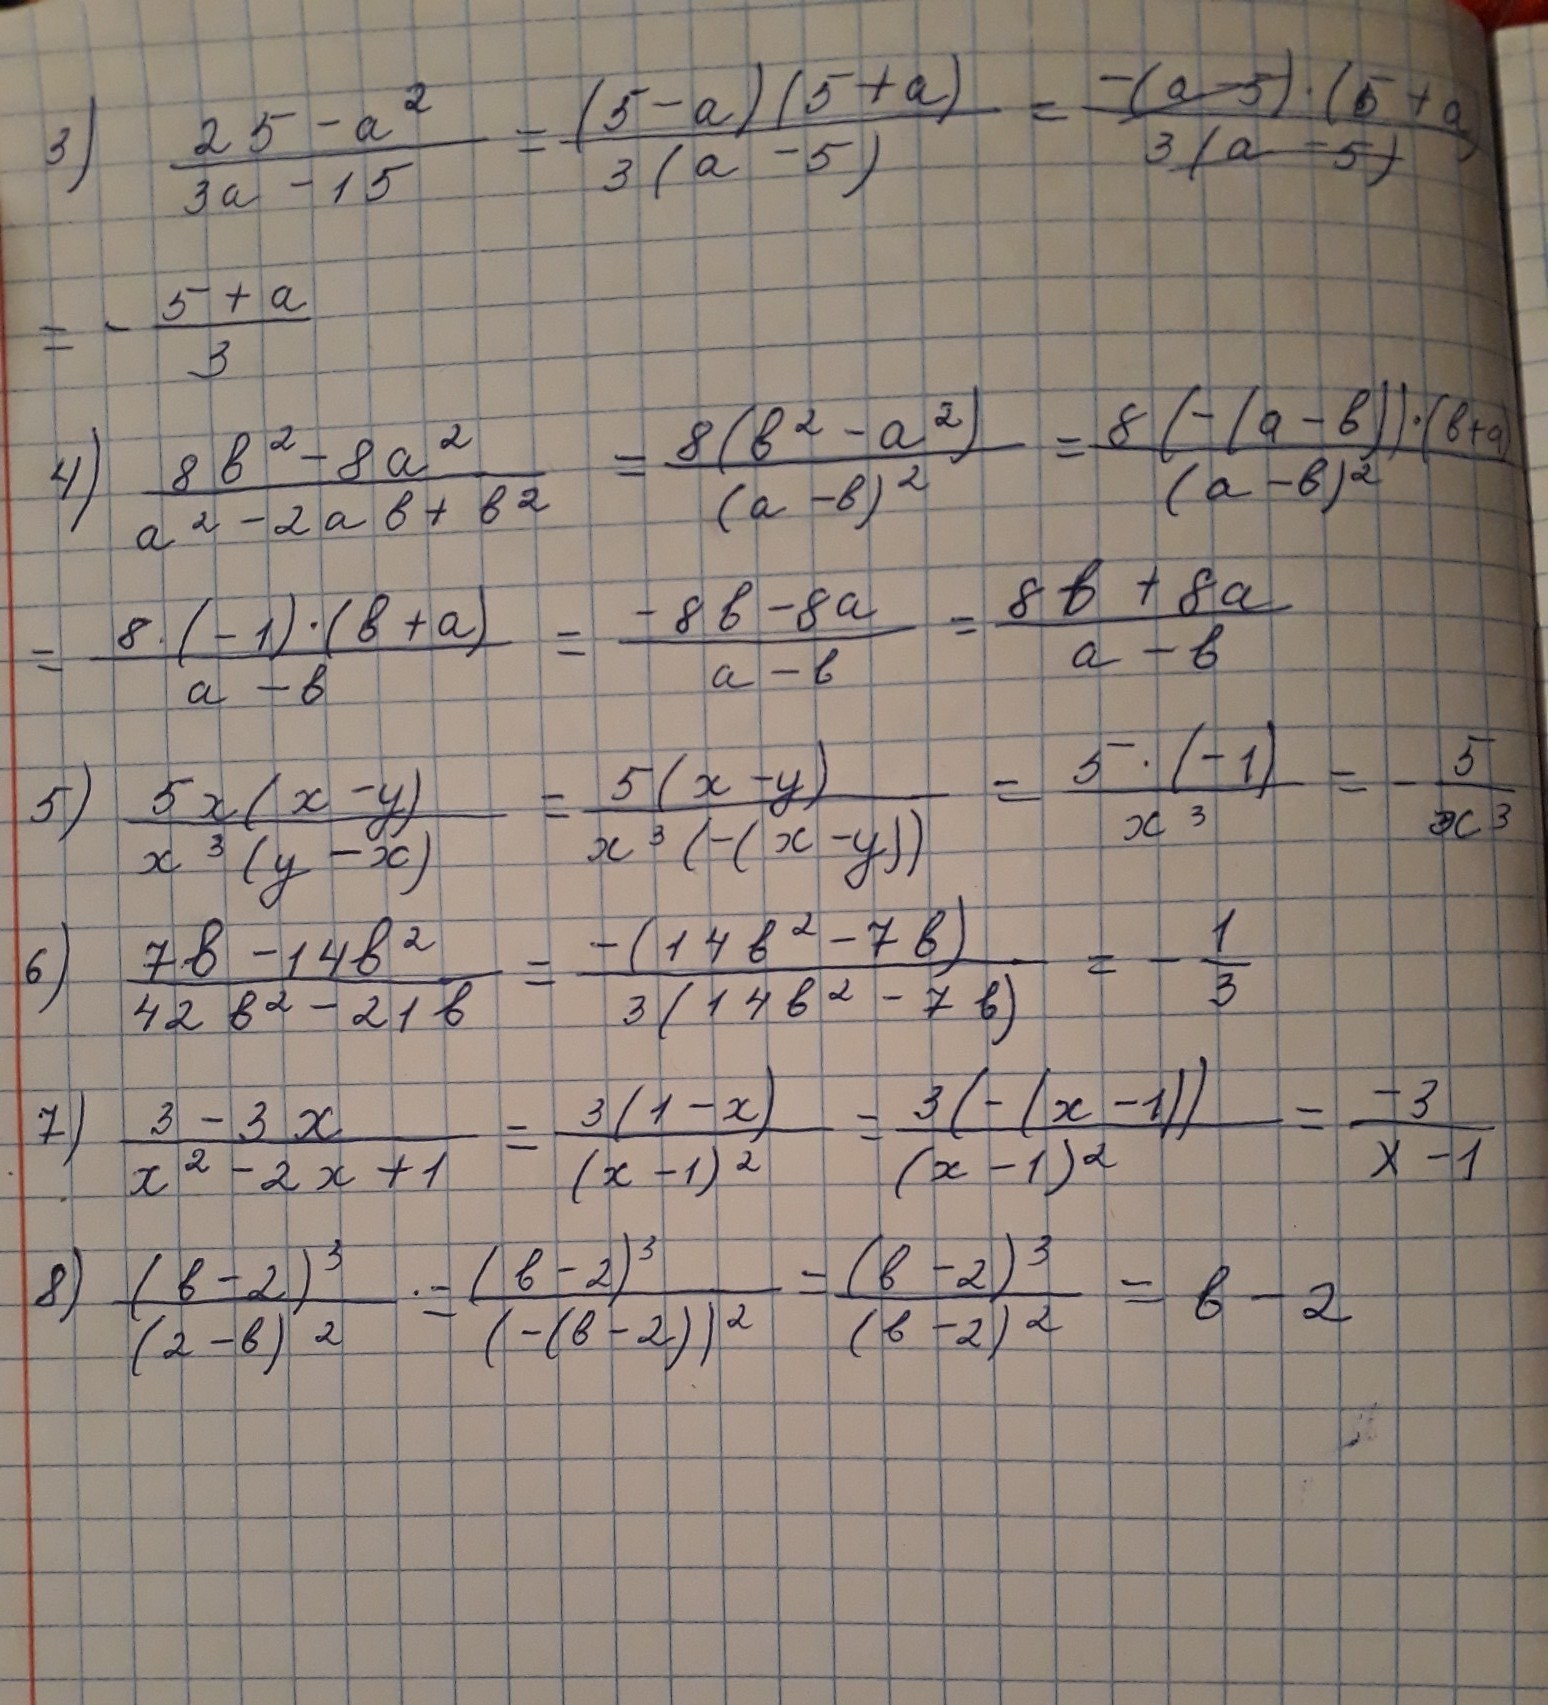 3) (25 - a²)/(3a - 15) = ((5 - a)(5 + a))/(3(a - 5)) = (-(a - 5)·(5 + a))/(3(a - 5))
= - (5 + a)/3
4) (8в² - 8a²)/(a² - 2aв + в²) = (8(в² - a²))/((a - в)²) = (8(-(a - в))·(в + a))/((a - в)²)
= (8·(-1)·(в + a))/(a - в) = (-8в - 8a)/(a - в) = (8в + 8a)/(a - в)
5) (5x(x - y))/(x³(y - x)) = (5(x - y))/(x³(-(x - y))) = (5·(-1))/(x³) = - 5/x³
6) (7в - 14в²)/(42в² - 21в) = (-(14в² - 7в))/(3(14в² - 7в)) = - 1/3
7) (3 - 3x)/(x² - 2x + 1) = (3(1 - x))/((x - 1)²) = (3(-(x - 1)))/((x - 1)²) = (-3)/(x - 1)
8) ((в - 2)³)/((2 - в)²) = ((в - 2)³)/((-(в - 2))²) = ((в - 2)³)/((в - 2)²) = в - 2